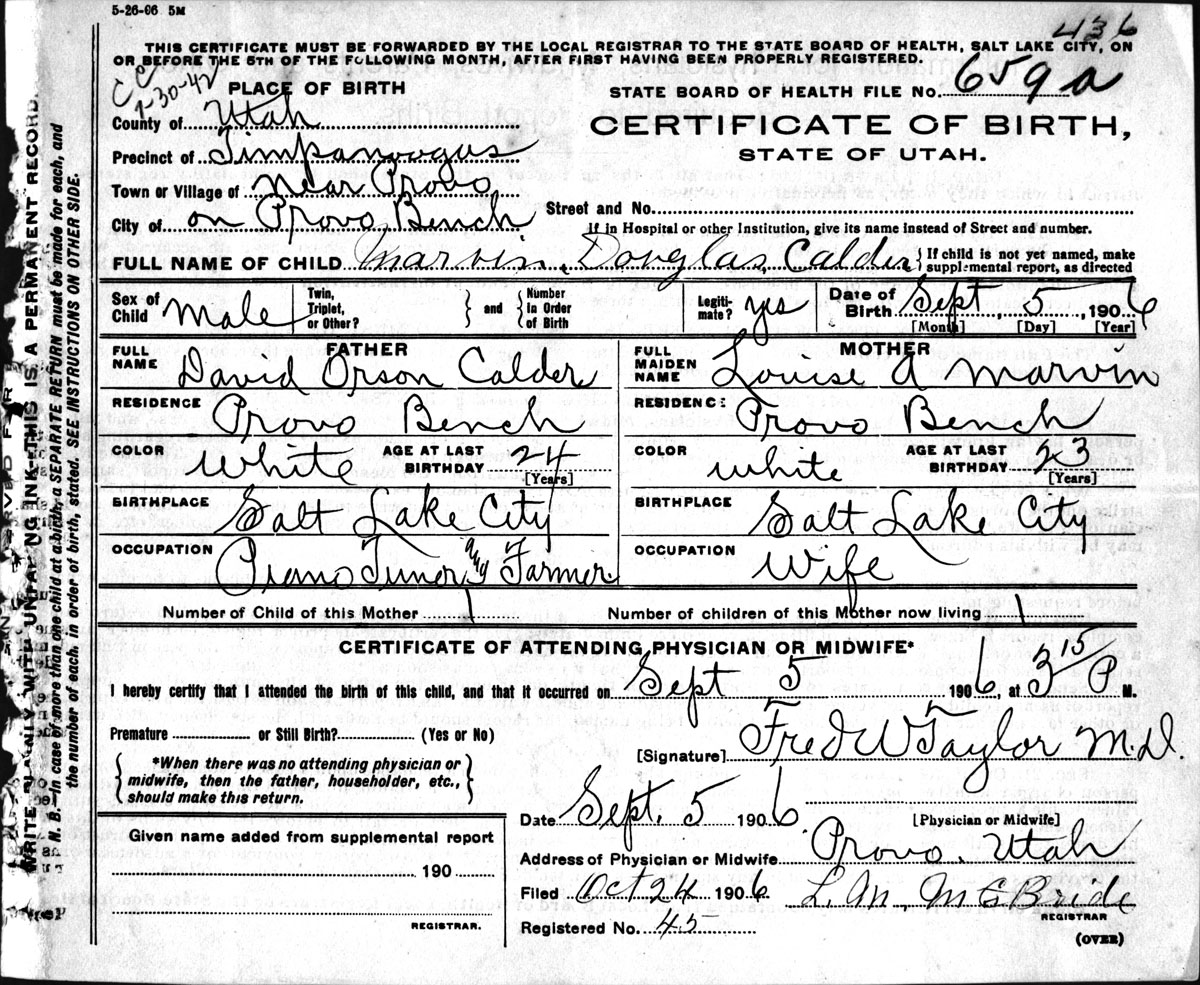 5-26-06 5M
436
THIS CERTIFICATE MUST BE FORWARDED BY THE LOCAL REGISTRAR TO THE STATE BOARD OF HEALTH, SALT LAKE CITY, ON
OR BEFORE THE 5TH OF THE FOLLOWING MONTH, AFTER FIRST HAVING BEEN PROPERLY REGISTERED.
CC
1-30-42
PLACE OF BIRTH
STATE BOARD OF HEALTH FILE NO. 659 a
County of Utah
CERTIFICATE OF BIRTH,
STATE OF UTAH.
Precinct of Timpanoogus
Town or Village of Near Provo
City of on Provo Bench
Street and No.
If in Hospital or other Institution, give its name instead of Street and number.
FULL NAME OF CHILD Marvin, Douglas, Calder { If child is not yet named, make supplemental report, as directed
Sex of Child Male Twin, Triplet, or Other? } and { Number in Order of Birth Legiti-mate? yes Date of Birth Sept, 5, 1906
[Month] [Day] [Year]
FATHER MOTHER
FULL NAME David Orson Calder FULL MAIDEN NAME Louise A Marvin
RESIDENCE Provo Bench RESIDENCE Provo Bench
COLOR White AGE AT LAST BIRTHDAY 24 [Years] COLOR White AGE AT LAST BIRTHDAY 23 [Years]
BIRTHPLACE Salt Lake City BIRTHPLACE Salt Lake City
OCCUPATION Piano Tuner and Farmer OCCUPATION Wife
Number of Child of this Mother 1 Number of children of this Mother now living 1
CERTIFICATE OF ATTENDING PHYSICIAN OR MIDWIFE*
I hereby certify that I attended the birth of this child, and that it occurred on Sept 5 1906, at 3 15 P M.
Premature or Still Birth? (Yes or No)
[Signature] Fred W Taylor M.D.
{ *When there was no attending physician or
midwife, then the father, householder, etc.,
should make this return. }
Date Sept. 5 1906 [Physician or Midwife]
Given name added from supplemental report
190
REGISTRAR.
Address of Physician or Midwife Provo, Utah
Filed Oct 24 1906 L. M. McBride
REGISTRAR
Registered No. 45
(OVER)
WRITE PLAINLY WITH UNFADING INK—THIS IS A PERMANENT RECORD.
N. B.—In case of more than one child at a birth, a SEPARATE RETURN must be made for each, and
the number of each, in order of birth, stated. SEE INSTRUCTIONS ON OTHER SIDE.